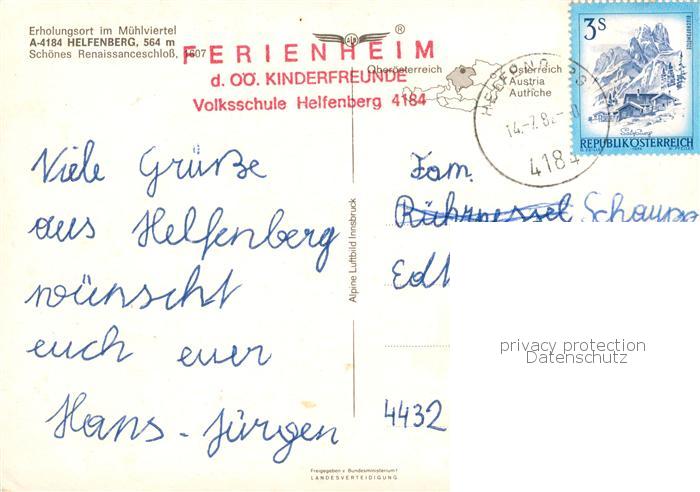 Erholungsort im Mühlviertel
A-4184 HELFENBERG, 564 m
Schönes Renaissanceschloß, 1607
®
FERIENHEIM
d. OÖ. KINDERFREUNDE
Volksschule Helfenberg 4184
Oberösterreich
Österreich
Austria
Autriche
4184
3S
REPUBLIK ÖSTERREICH
Viele Grüße
aus Helfenberg
wünscht
euch euer
Hans-Jürgen
Alpine Luftbild Innsbruck
Fam.
4432
privacy protection
Datenschutz
Freigegeben v. Bundesministerium f.
LANDESVERTEIDIGUNG